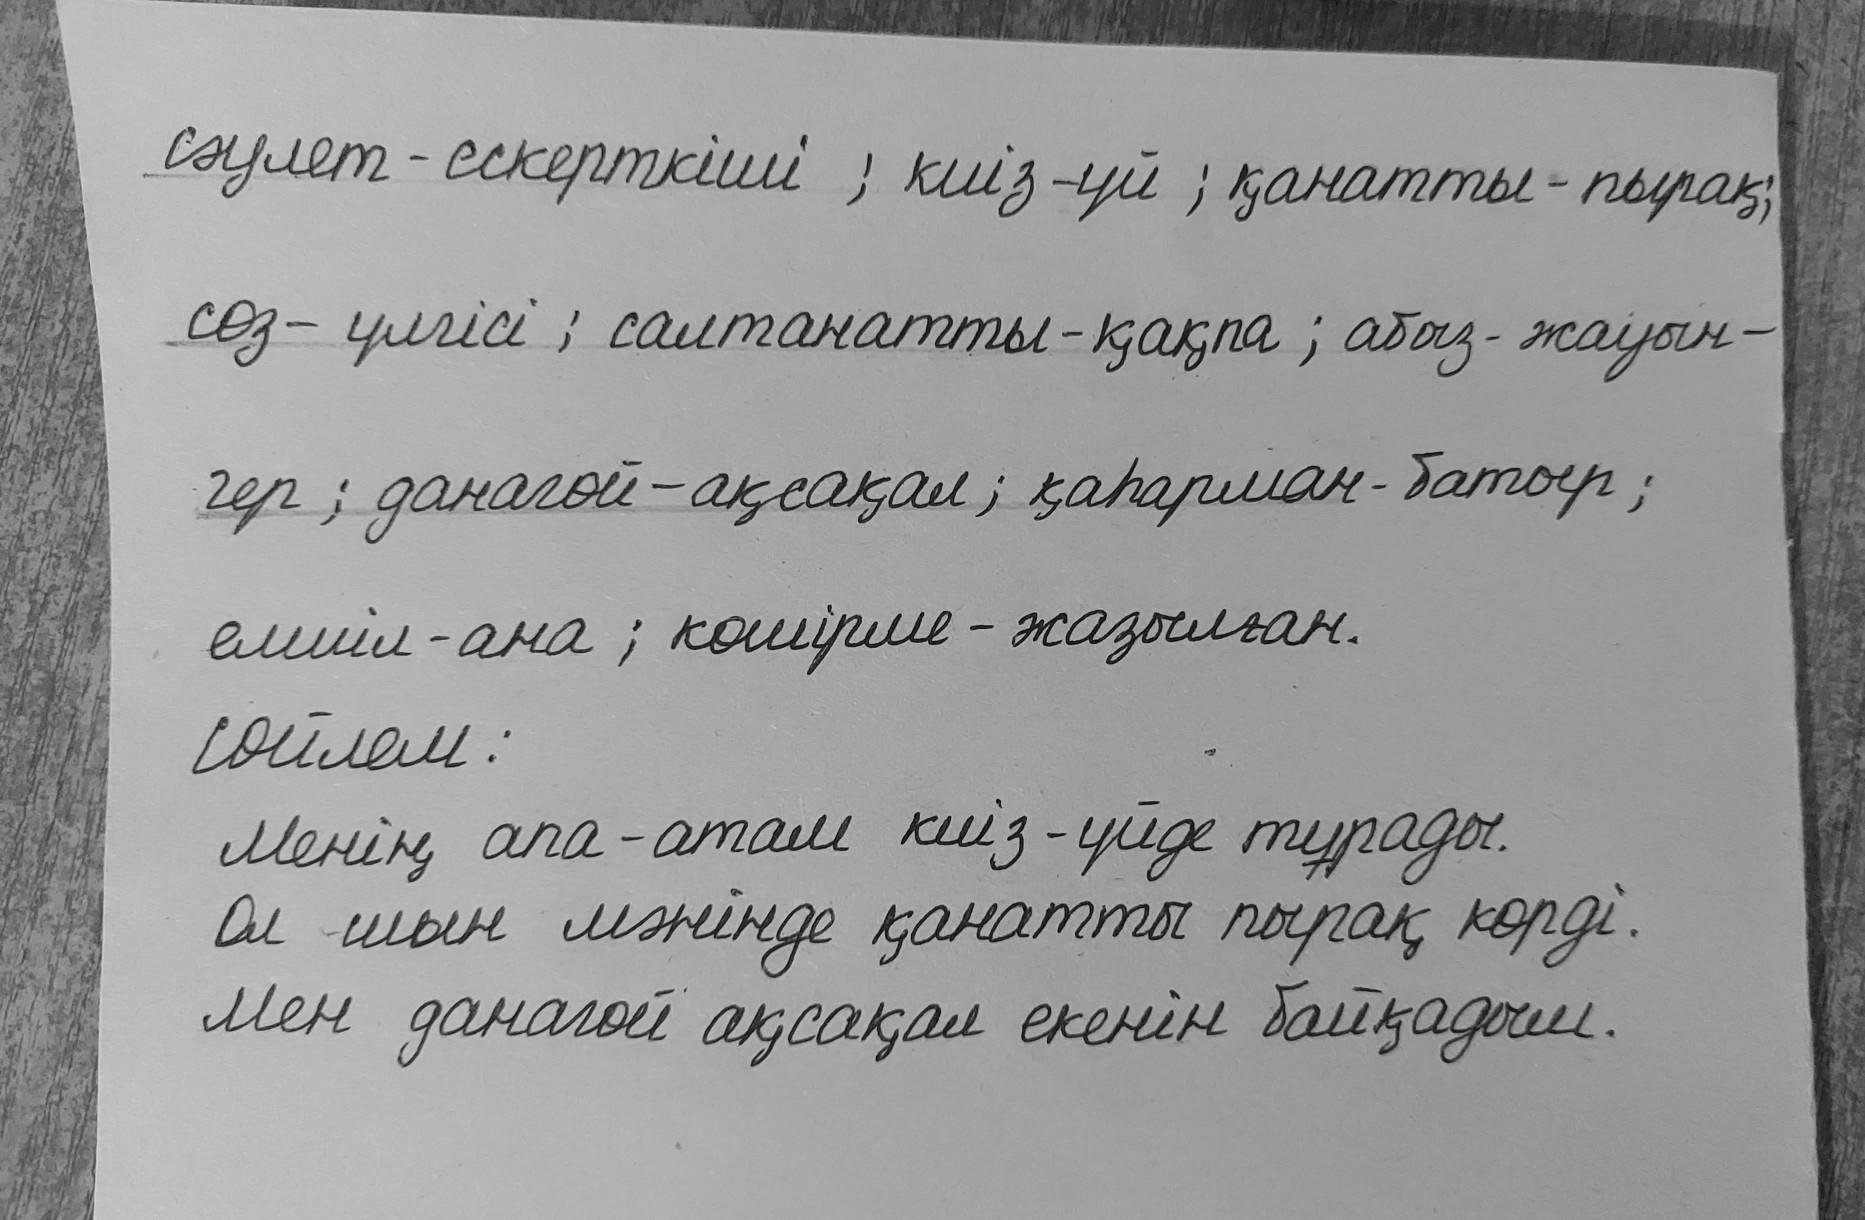 сәулет - ескерткіші ; киіз - үй ; қанатты - пырақ;
сөз - үлгісі ; салтанатты - қақпа ; абыз - жауын-
гер ; данагөй - ақсақал ; қаһарман - батыр ;
емшіл - ана ; көшірме - жазылған.
Сөйлем :
Менің апа - атам киіз - үйде тұрады.
Ол шын мәнінде қанатты пырақ көрді.
Мен данагөй ақсақал екенін байқадым.